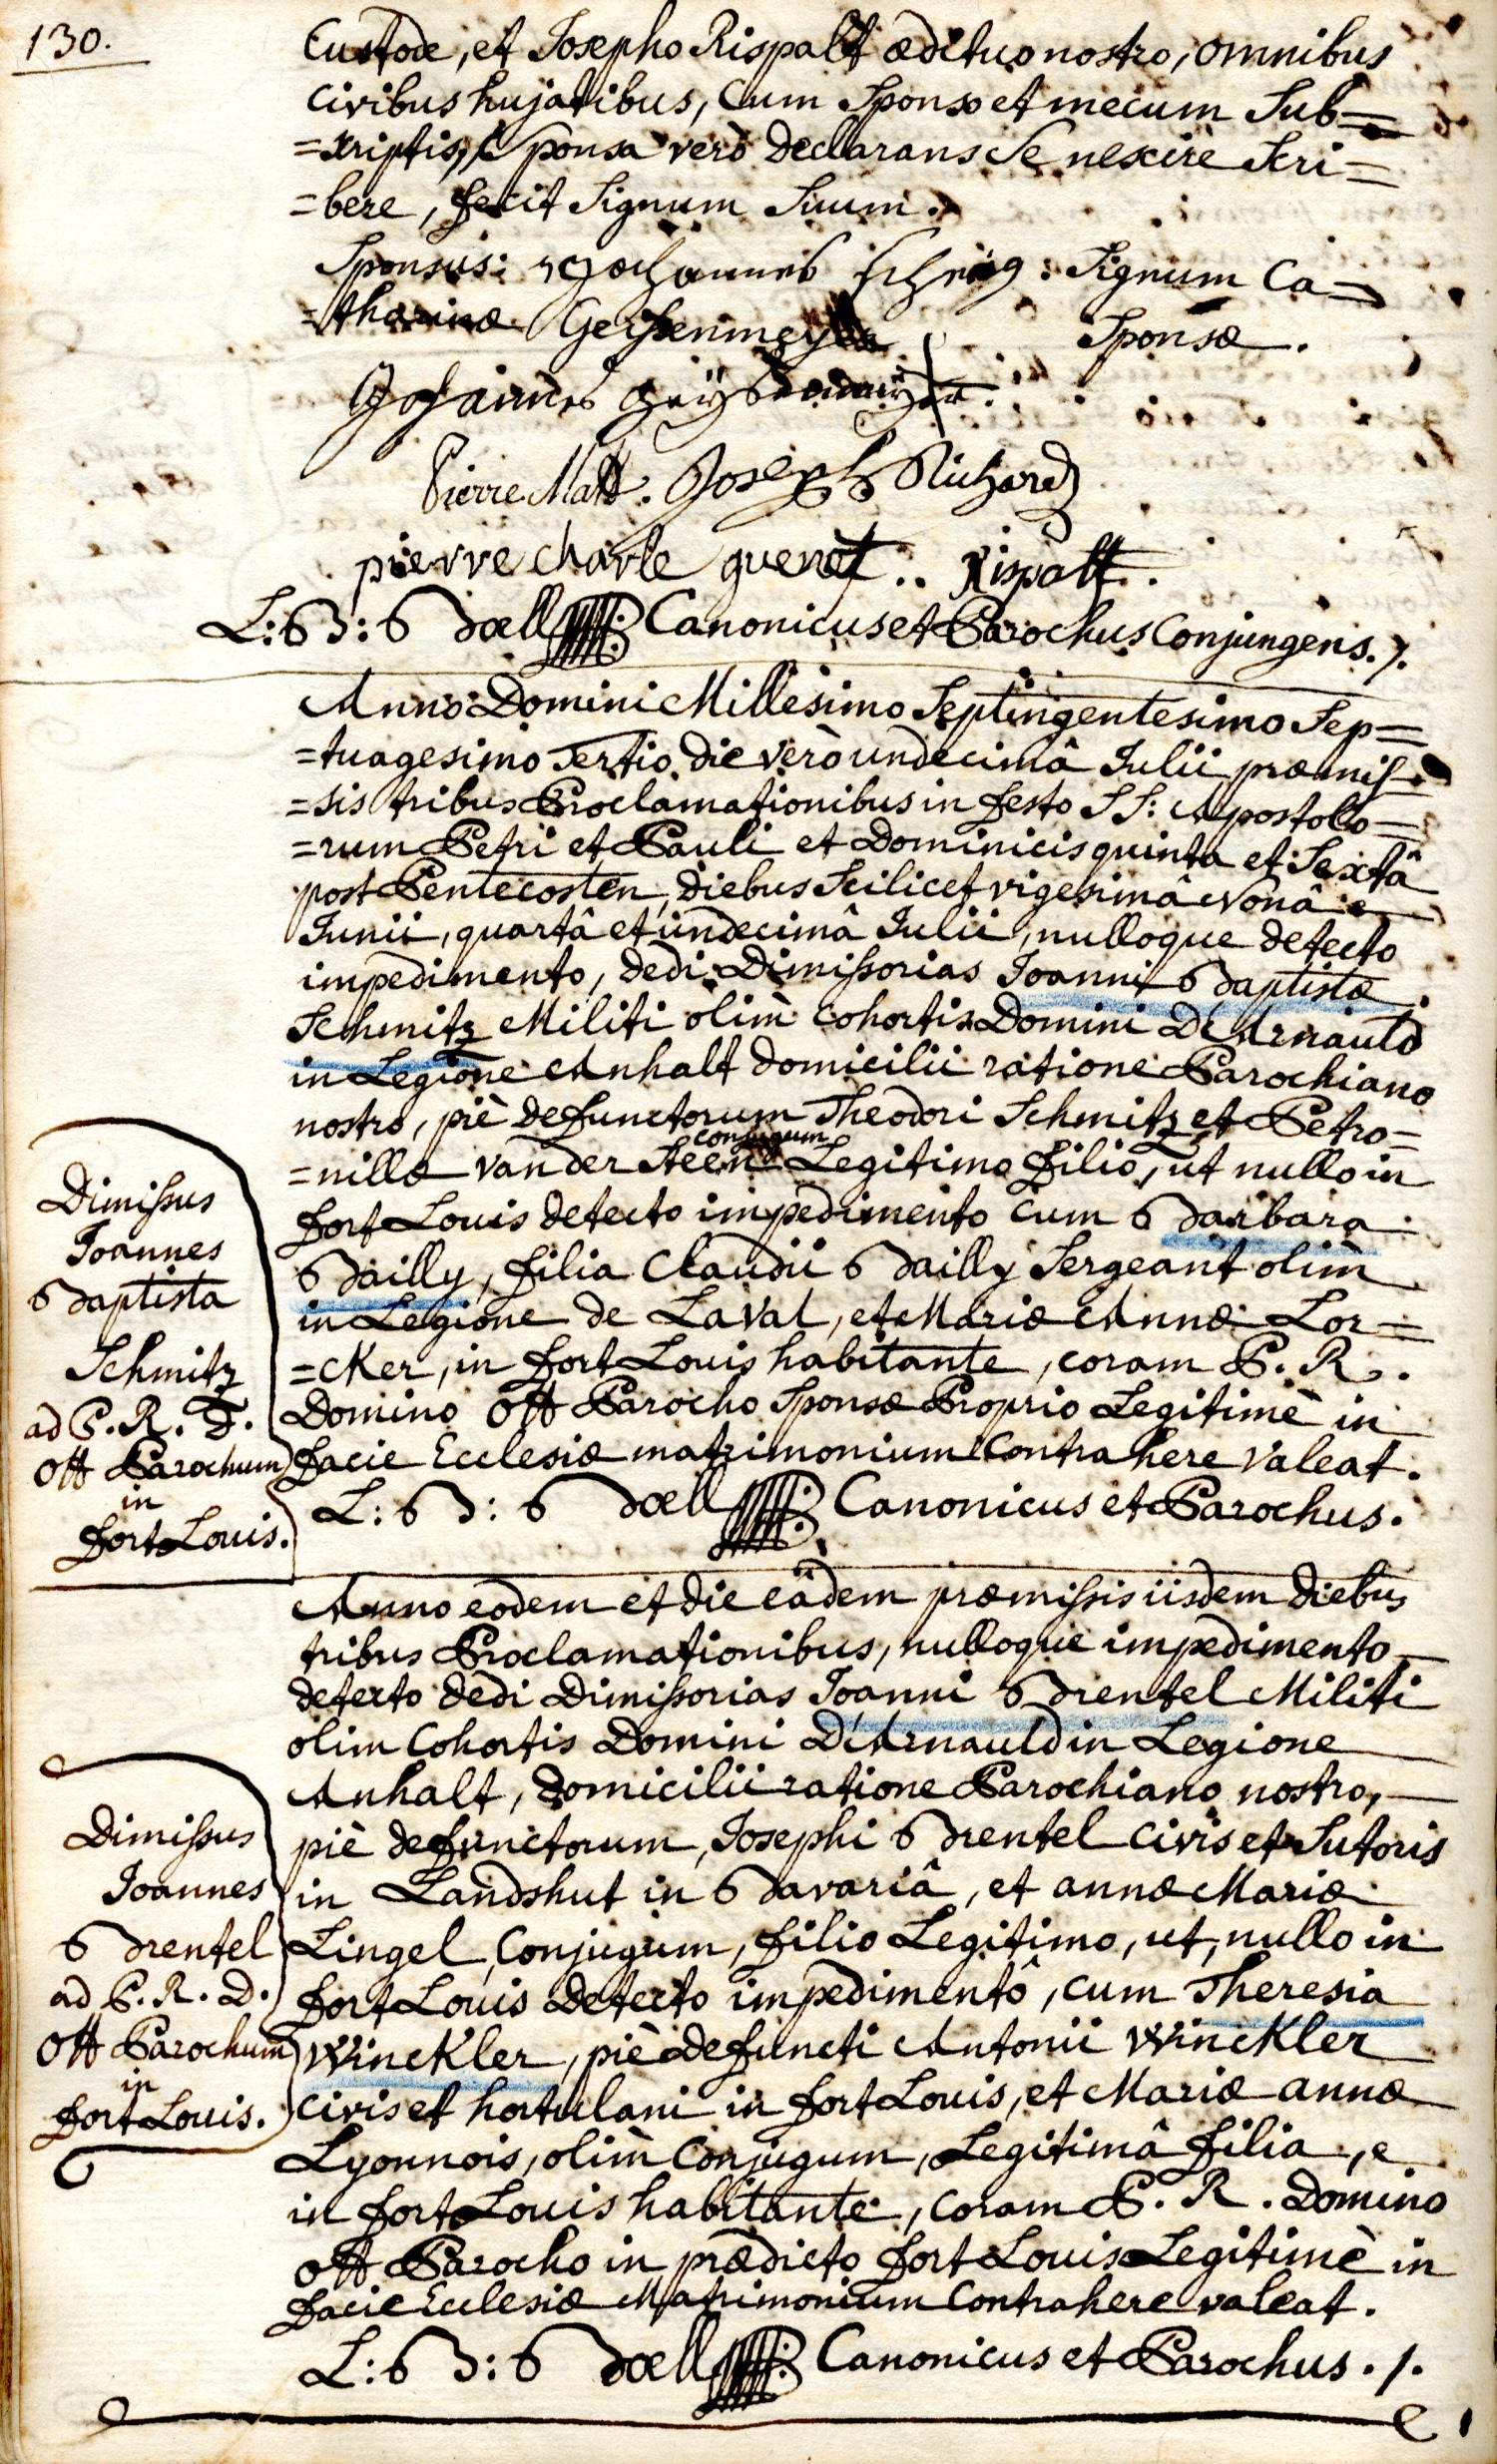 130.
Custode, et Josepho Rispalt ædituo nostro, omnibus
civibus hujatibus, Cum Sponso et mecum Sub=
=scriptis, Sponsa verò declarans se nescire Scri=
=bere, fecit Signum Suum.
Sponsus: Johannes : Signum Ca=
=tharinæ Geissenmeyer Sponsæ.
Johannes
Pierre Matt. Joseph Richard
pierre charle guenot.. Rispalt.
L: B: Bœll Canonicus et Parochus Conjungens. /.
Anno Domini Millesimo Septingentesimo Sep=
=tuagesimo Tertio die verò undecimâ Julii præmis=
=sis tribus Proclamationibus in festo SS: Apostolo=
=rum Petri et Pauli et Dominicis quinta et Sextâ
post Pentecosten, diebus Scilicet vigesimâ Nonâ
Junii, quartâ et undecimâ Julii, nulloque detecto
impedimento, dedi Dimissorias Joanni Baptistæ
Schmitz Militi olim cohortis Domini D'Arnauld
in Legione Anhalt domicilii ratione Parochiano
nostro, piè defunctorum Theodori Schmitz et Petro=
=nillæ van der Steen conjugum Legitimo filio, ut nullo in
fort Louis detecto impedimento cum Barbara
Bailly, filia Claudii Bailly Sergeant olim
in Legione de LaVal, et Mariæ Annæ Lor=
=cKer, in fort Louis habitante, coram P. R.
Domino Ott Parocho Sponsæ Proprio Legitimè in
facie Ecclesiæ matrimonium Contrahere Valeat.
L: B: Bœll Canonicus et Parochus.
Dimissus
Joannes
Baptista
Schmitz
ad P. R. D.
Ott Parochum
in
fort Louis.
Anno eodem et die eâdem præmissis iisdem diebus
tribus Proclamationibus, nulloque impedimento
detecto dedi Dimissorias Joanni Brentel Militi
olim Cohortis Domini D'Arnauld in Legione
Anhalt, domicilii ratione Parochiano nostro,
piè defunctorum, Josephi Brentel civis et Sutoris
in Landshut in Bavariâ, et annæ Mariæ
Lingel, Conjugum, filio Legitimo, ut, nullo in
fort Louis detecto impedimentô, cum Theresia
WincKler, piè defuncti Antonii WincKler
civis et hortulani in fort Louis, et Mariæ annæ
Lyonnois, olim Conjugum, Legitimâ filia,
in fort Louis habitante, coram P. R. Domino
Ott Parocho in prædicto fort Louis Legitimè in
facie Ecclesiæ Matrimonium Contrahere valeat.
L: B: Bœll Canonicus et Parochus. /.
Dimissus
Joannes
Brentel
ad P. R. D.
Ott Parochum
in
fort Louis.